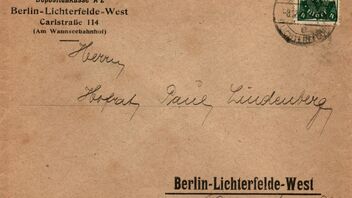 Depositenkasse A 2
Berlin-Lichterfelde-West
Carlstraße 114
(Am Wannseebahnhof)
Herrn
Hofrat Paul Lindenberg
Berlin-Lichterfelde-West